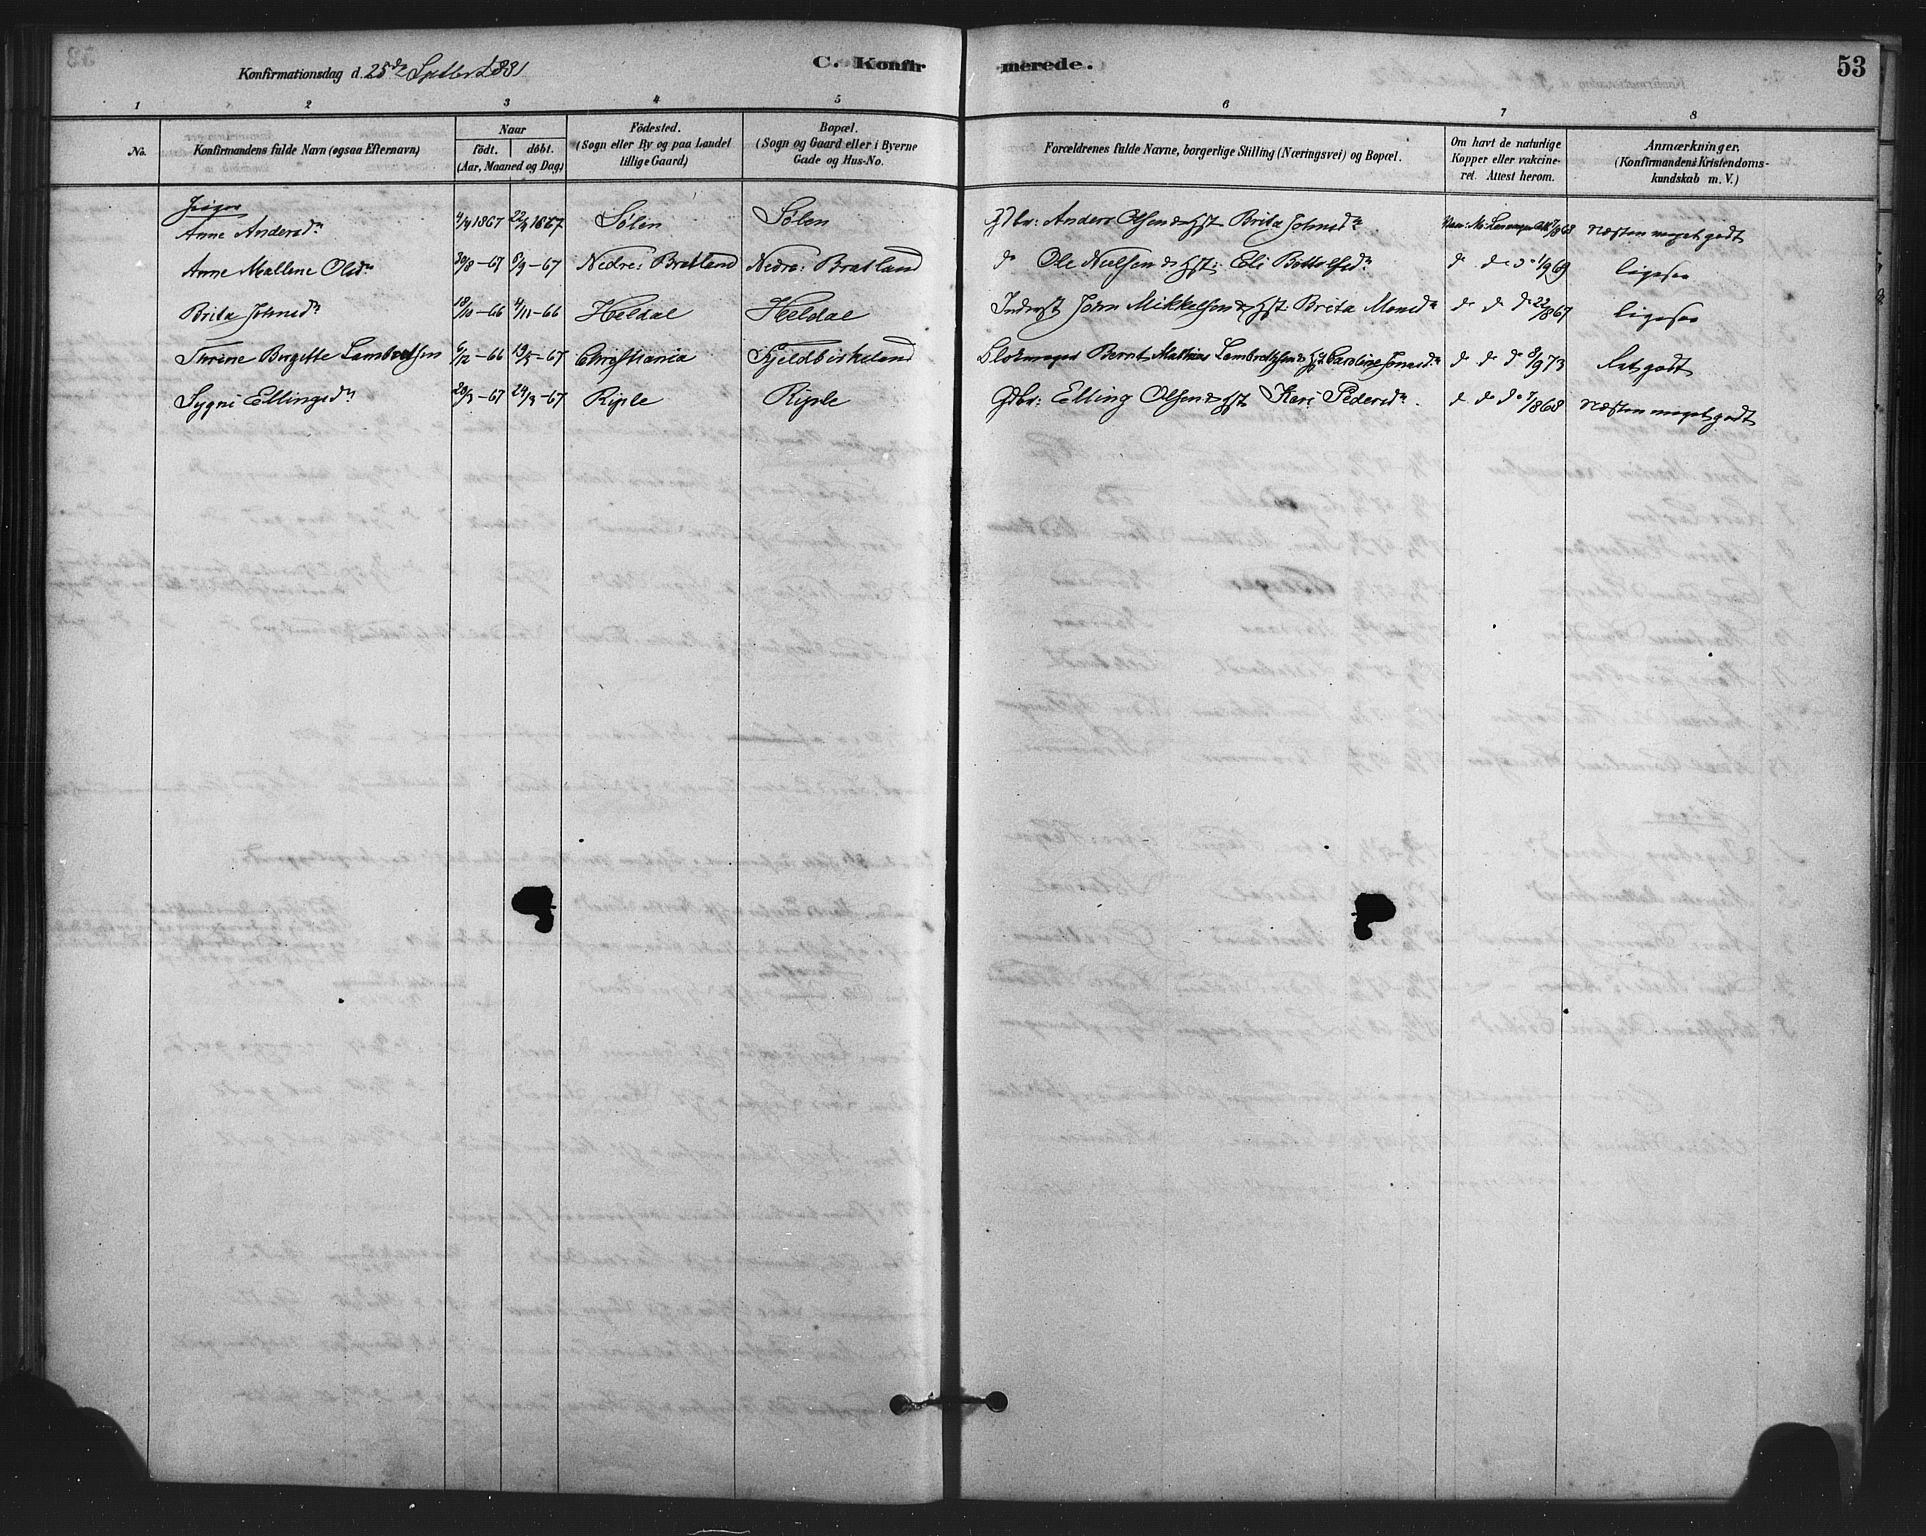 Konfirmationsdag d. 25de Septbr 1881
C. Konfirmerede.
53
1 2 3 4 5 6 7 8
No.
Konfirmandens fulde Navn (ogsaa Efternavn)
Naar
født. døbt.
(Aar, Maaned og Dag)
Fødested.
(Sogn eller By og paa Landet
tillige Gaard)
Bopæl.
(Sogn og Gaard eller i Byerne
Gade og Hus-No.
Forældrenes fulde Navne, borgerlige Stilling (Næringsvei) og Bopæl.
Om havt de naturlige
Kopper eller vakcine-
ret. Attest herom.
Anmærkninger.
(Konfirmandens Kristendoms-
kundskab m. V.)
Piger
Anne Andersdr 4/4 1867 22/4 1867 Sølen Sølen Gdbr: Anders Olsen & Hst Brita Johnsdr Næsten meget godt
Anne Mallene Olsdr 30/8-67 8/9-67 Nedre: Bratland Nedre: Bratland do Ole Neelsen & Hst: Eli Bottolfsdr do do do 1/9 69 ligesaa
Brita Johnsdr 18/10-66 4/11-66 Heldal Heldal Inderst John Mikkelsen & Hst Brita Monsdr do do do 22/8 67 ligesaa
Thrine Birgitte Lambretsen 6/12-66 19/5-67 Christiania Fjeldbirkeland Blokmager Bernt Mathias Lambretsen & Hst Caroline Jonasdr do do do 8/9 73 Ret godt
Sygni Ellingsdr 20/3-67 24/3-67 Riple Riple Gdbr: Elling Olsen & Hst Kari Pedersdr do do do 7/8 68 Næsten meget godt